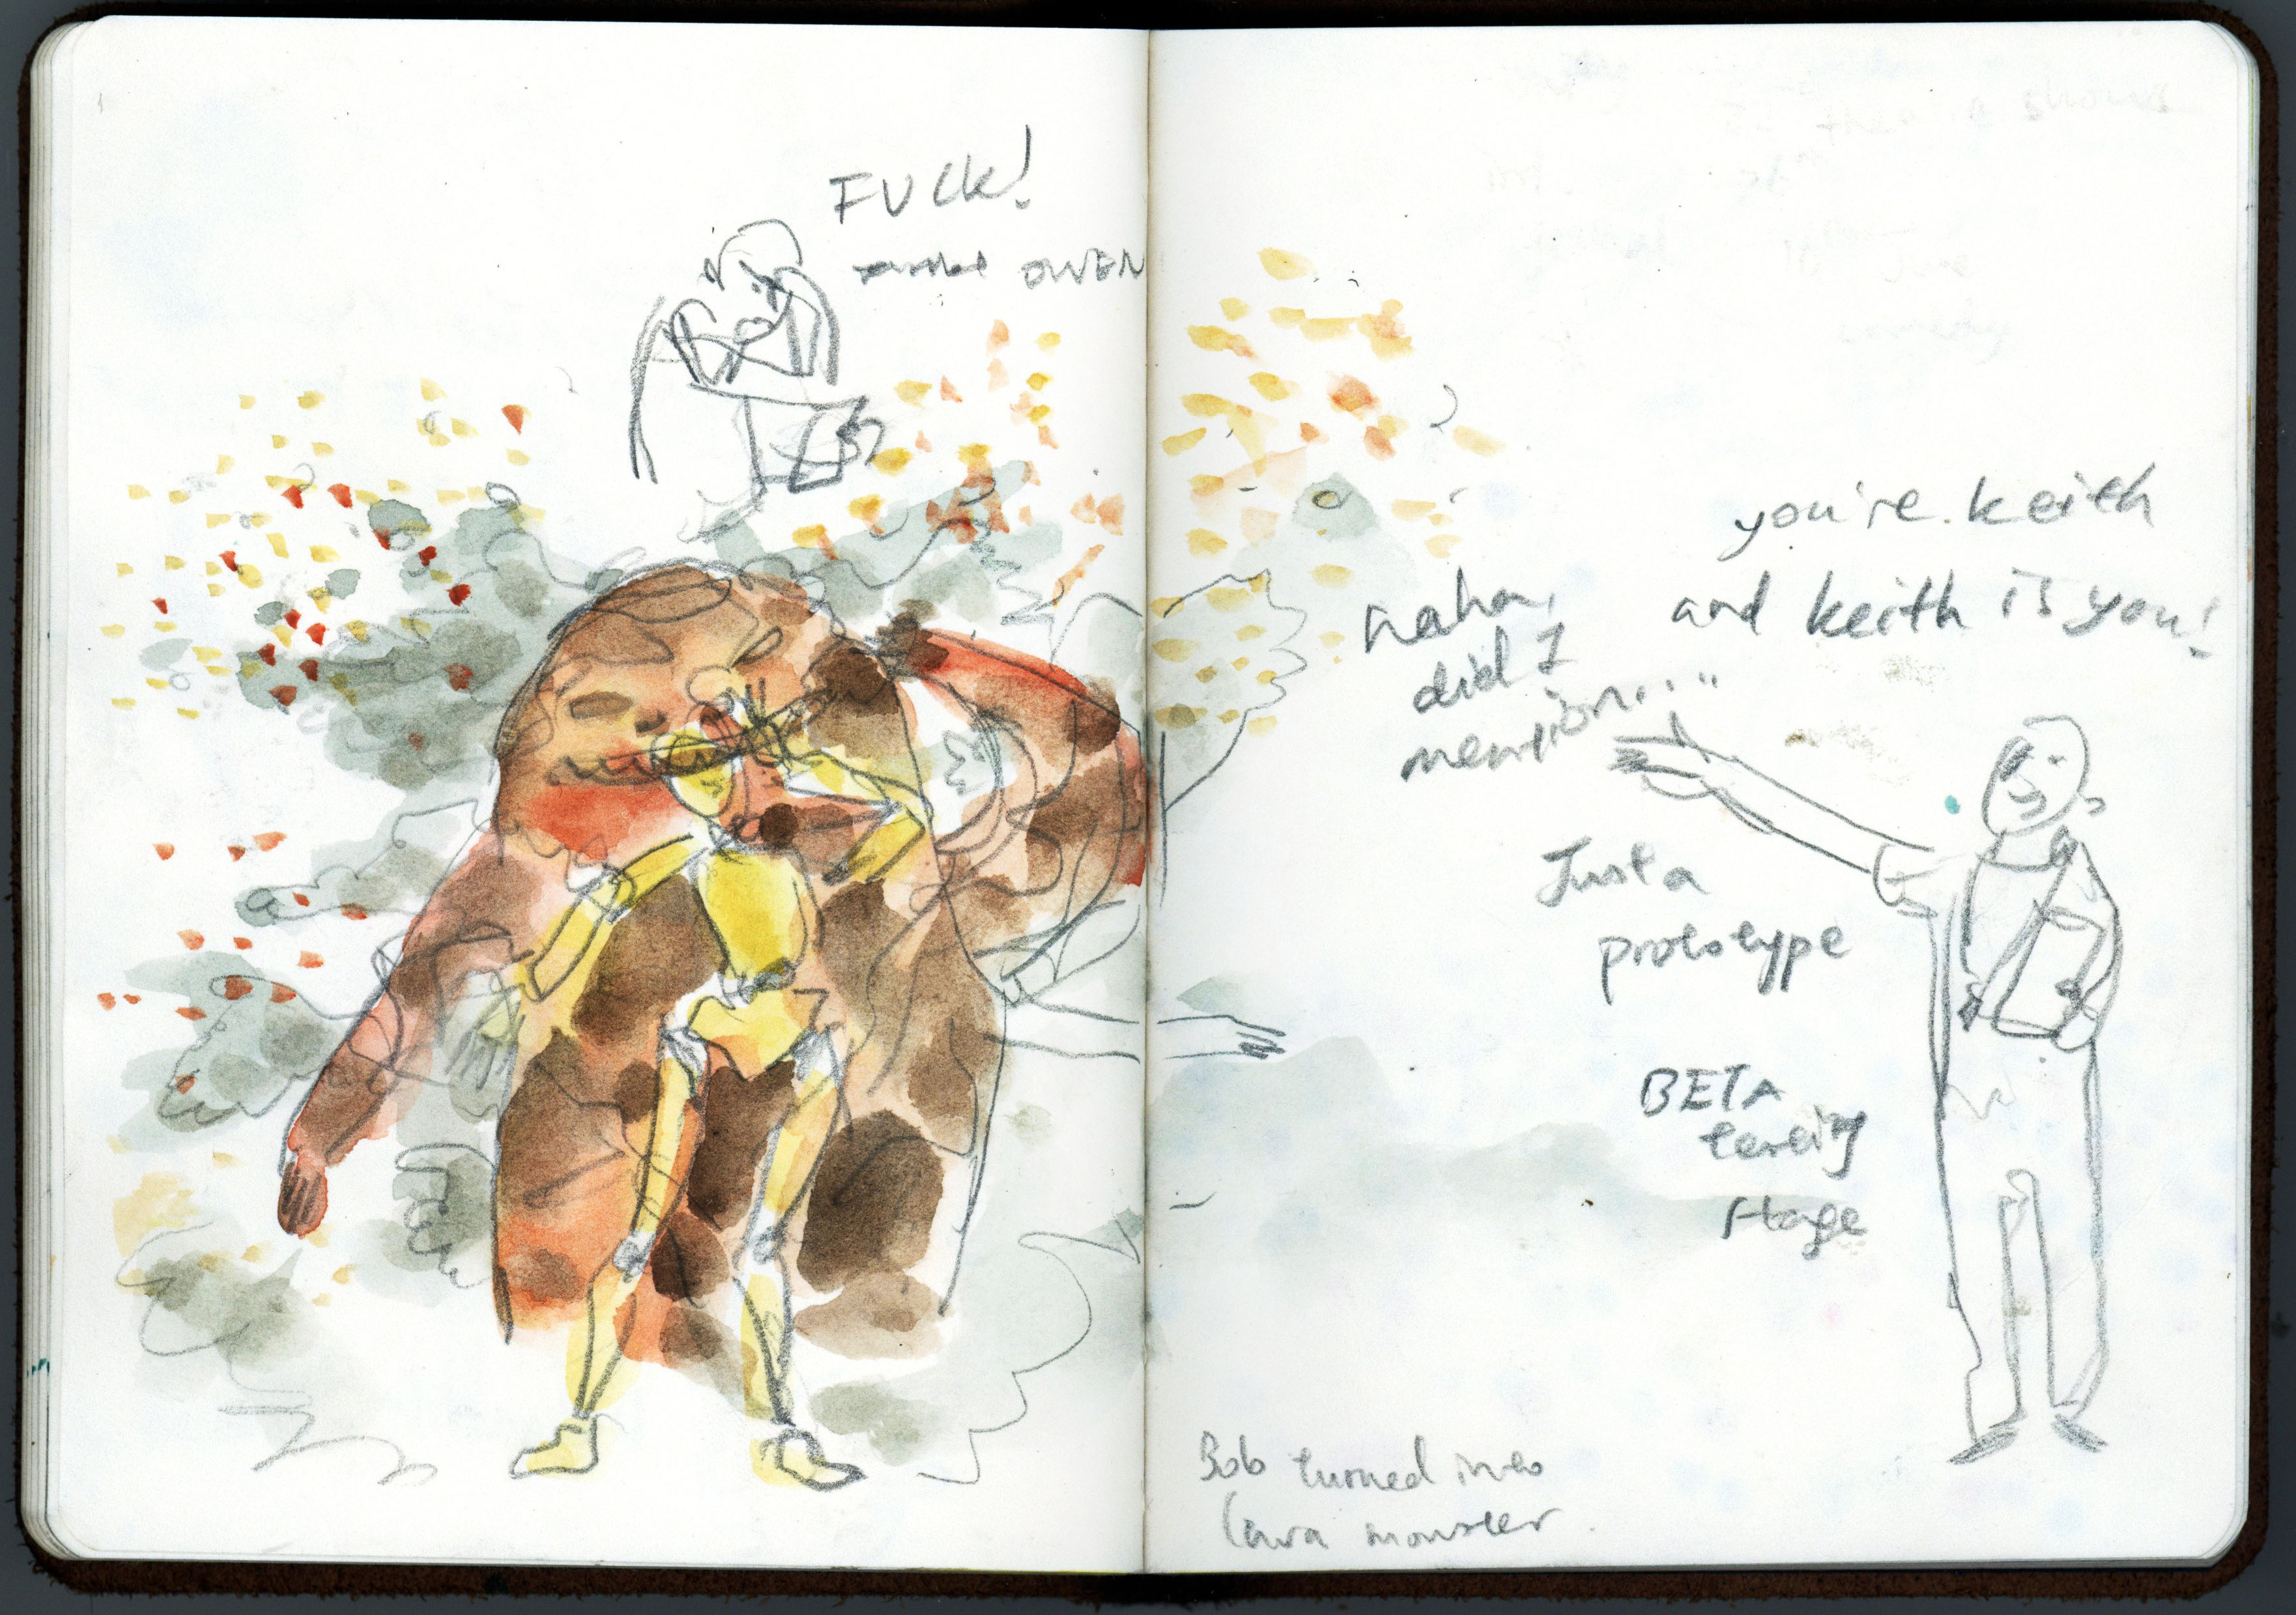 FUCK!
OWEN
you're keith
and keith is you!
hahaha,
did I
mention....."
Just a
prototype
BETA
testing
stage
Bob turned into
lava monster